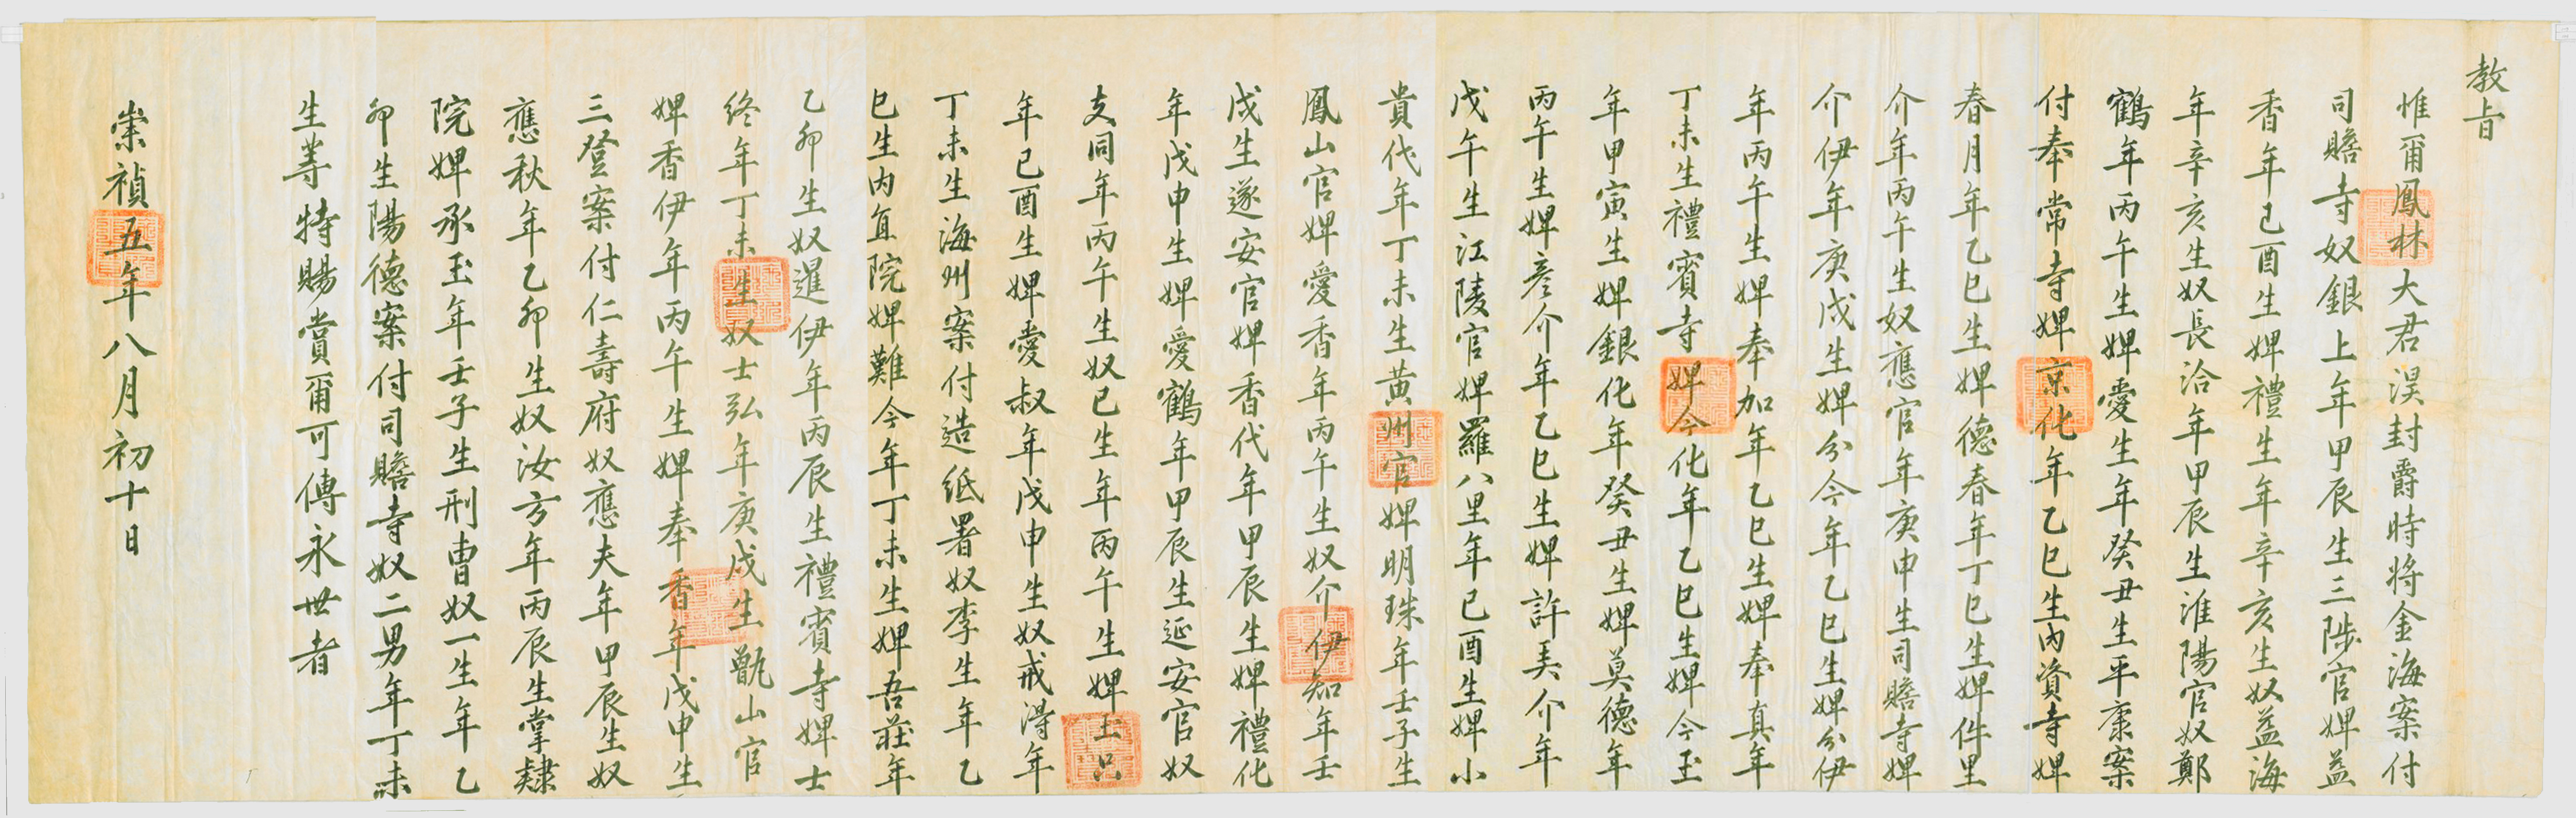 教旨
惟爾鳳林大君淏封爵時將金海案付
司贍寺奴銀上年甲辰生三陟官婢益
香年己酉生婢禮生年辛亥生奴益海
年辛亥生奴長洽年甲辰生淮陽官奴鄭
鶴年丙午生婢愛生年癸丑生平康案
付奉常寺婢京化年乙巳生內資寺婢
春月年乙巳生婢德春年丁巳生婢件里
介年丙午生奴應官年庚申生司贍寺婢
介伊年庚戌生婢分今年乙巳生婢分伊
年丙午生婢奉加年乙巳生婢奉真年
丁未生禮賓寺婢今化年乙巳生婢今玉
年甲寅生婢銀化年癸丑生婢莫德年
丙午生婢彥介年乙巳生婢許美介年
戊午生江陵官婢羅八里年己酉生婢小
貴代年丁未生黃州官婢明珠年壬子生
鳳山官婢愛香年丙午生奴介伊知年壬
戌生遂安官婢香代年甲辰生婢禮化
年戊申生婢愛鶴年甲辰生延安官奴
支同年丙午生奴巳生年丙午生婢玉只
年己酉生婢愛叔年戊申生奴戒淂年
丁未生海州案付造紙署奴李生年乙
巳生內宜院婢難今年丁未生婢吾莊年
乙卯生奴暹伊年丙辰生禮賓寺婢士
終年丁未生奴士弘年庚戌生甑山官
婢香伊年丙午生婢奉香年戊申生
三登案付仁壽府奴應夫年甲辰生奴
應秋年乙卯生奴汝方年丙辰生掌隸
院婢承玉年壬子生刑曹奴一生年乙
卯生陽德案付司贍寺奴二男年丁未
生等特賜賞爾可傳永世者
崇禎五年八月初十日